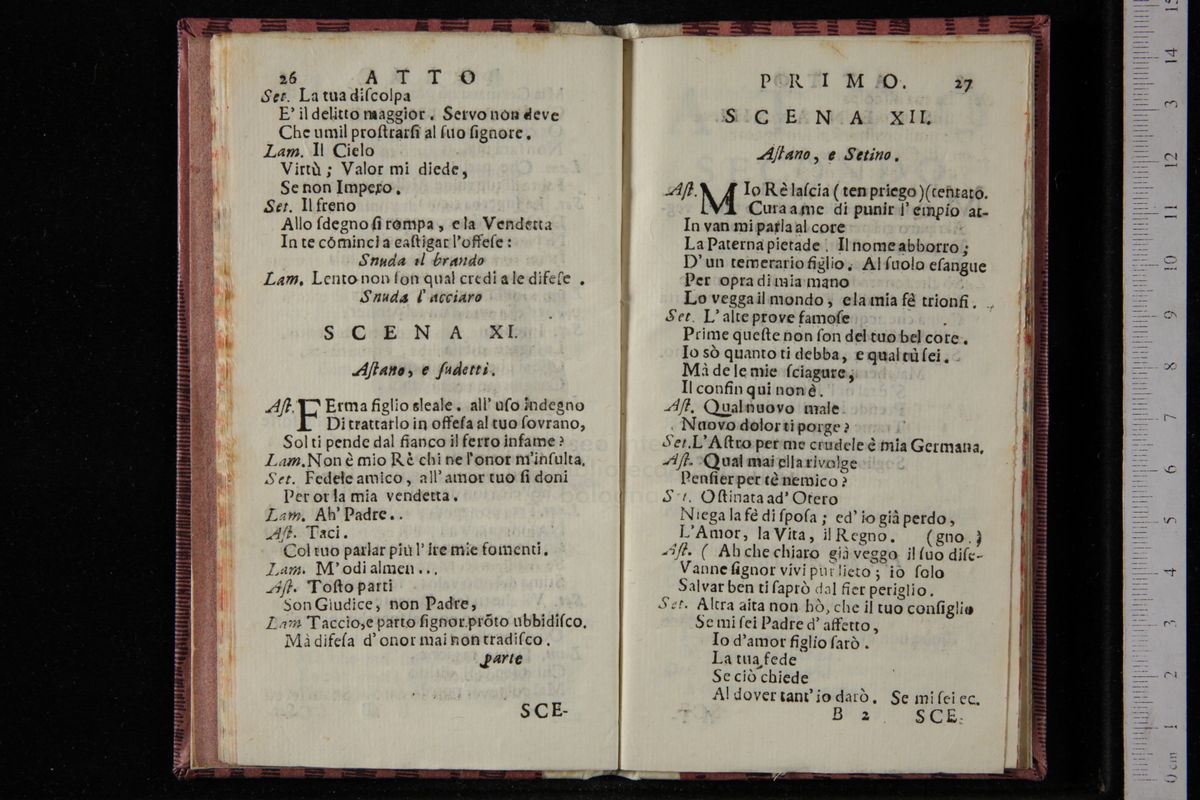 26 ATTO
Set. La tua diſcolpa
E' il delitto maggior. Servo non deve
Che umil proſtrarſi al ſuo ſignore.
Lam. Il Cielo
Virtù; Valor mi diede,
Se non Impero.
Set. Il freno
Allo ſdegno ſi rompa, e la Vendetta
In te cóminci a eaſtigar l'offeſe:
Snuda il brando
Lam. Lento non ſon qual credi a le difeſe.
Snuda l'acciaro
SCENA XI.
Aſtano, e ſudetti.
Aſt. FErma figlio sleale. all' uſo indegno
Di trattarlo in offeſa al tuo ſovrano,
Sol ti pende dal fianco il ferro infame?
Lam. Non è mio Rè chi ne l'onor m'inſulta.
Set. Fedele amico, all' amor tuo ſi doni
Per or la mia vendetta.
Lam. Ah' Padre..
Aſt. Taci.
Col tuo parlar più l' ire mie fomenti.
Lam. M'odi almen...
Aſt. Toſto parti
Son Giudice, non Padre,
Lam Taccio, e parto ſignor. prõto ubbidiſco.
Mà difeſa d'onor mai non tradiſco.
parte
SCE-
PRIMO. 27
SCENA XII.
Aſtano, e Setino.
Aſt. MIo Rè laſcia (ten priego) (tentato.
Cura a me di punir l' empio at-
In van mi parla al core
La Paterna pietade. Il nome abborro;
D' un temerario figlio. Al ſuolo eſangue
Per opra di mia mano
Lo vegga il mondo, e la mia fê trionfi.
Set. L' alte prove famoſe
Prime queſte non ſon del tuo bel core.
Io sò quanto ti debba, e qual tù ſei.
Mà de le mie ſciagure,
Il confin qui non è.
Aſt. Qual nuovo male
Nuovo dolor ti porge?
Set. L'Aſtro per me crudele è mia Germana.
Aſt. Qual mai ella rivolge
Penſier per tè nemico?
Set. Oſtinata ad' Otero
Niega la fè di ſpoſa; ed' io già perdo,
L'Amor, la Vita, il Regno. (gno.)
Aſt. ( Ah che chiaro già veggo il ſuo diſe-
Vanne ſignor vivi pur lieto; iò ſolo
Salvar ben ti ſaprò dal fier periglio.
Set. Altra aita non hò, che il tuo conſiglio
Se mi ſei Padre d' affetto,
Io d'amor figlio ſarò.
La tua fede
Se ciò chiede
Al dover tant' io darò. Se mi ſei ec.
B 2 SCE-